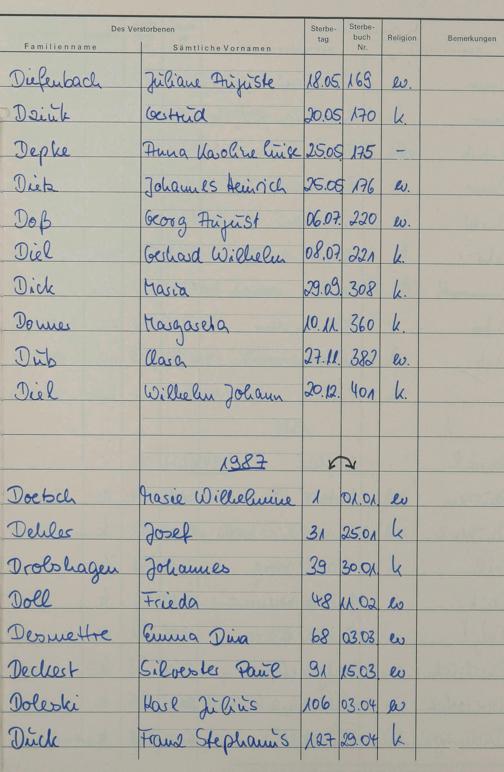 Des Verstorbenen Sterbe- Sterbe-
tag buch Religion Bemerkungen
Familienname Sämtliche Vornamen Nr.
Diefenbach Juliane Auguste 18.05. 169 ev.
Dziuk Gertrud 20.05. 170 k.
Depke Anna Karoline Luise 25.05. 175 -
Dietz Johannes Heinrich 25.05 176 ev.
Doß Georg August 06.07. 220 ev.
Diel Gerhard Wilhelm 08.07. 221 k.
Dick Maria 29.09. 308 k.
Donner Margareta 10.11. 360 k.
Dub Clara 27.11. 382 ev.
Diel Wilhelm Johann 20.12. 401 k.
1987
Doetsch Marie Wilhelmine 1 01.01. ev
Dehler Josef 31 25.01 k
Drolshagen Johannes 39 30.01. k
Doll Frieda 48 11.02 ev
Desmettre Emma Dina 68 03.03 ev
Deckert Silvester Paul 91 15.03. ev
Doleski Karl Julius 106 03.04 ev
Dück Franz Stephanus 127 29.04 k